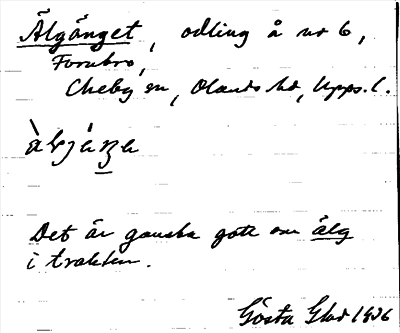 Älgänget, odling å nr 6,
Forubro,
Cheby sn, Olands hd, Upps. l.
Det är ganska gott om älg
i trakten.
Gösta 1936